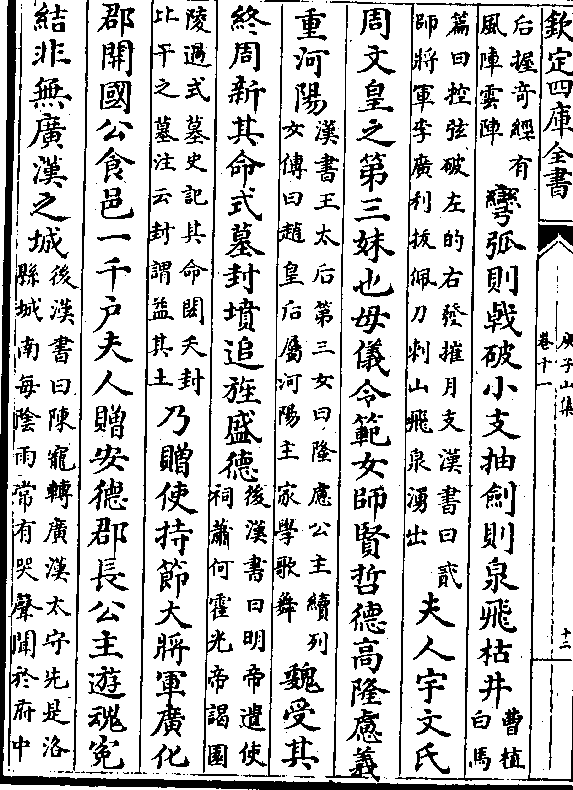 欽定四庫全書
庾子山集
卷十一
十二
后握奇經有
風陣雲陣
彎弧則戟破小支抽劍則泉飛枯井
曹植
白馬
篇曰控弦破左的右發摧月支漢書曰貳
師將軍李廣利拔佩刀刺山飛泉湧出
夫人宇文氏
周文皇之第三妹也母儀令範女師賢哲德高隆慮義
重河陽
漢書王太后第三女曰隆慮公主續列
女傳曰趙皇后屬河陽主家學歌舞
魏受其
終周新其命式墓封墳追旌盛德
後漢書曰明帝遣使
祠蕭何霍光帝謁園
陵過式墓史記其命閎夭封
比干之墓注云封謂益其土
乃贈使持節大將軍廣化
郡開國公食邑一千户夫人贈安德郡長公主遊魂寃
結非無廣漢之城
後漢書曰陳寵轉廣漢太守先是洛
縣城南每陰雨常有哭聲聞於府中